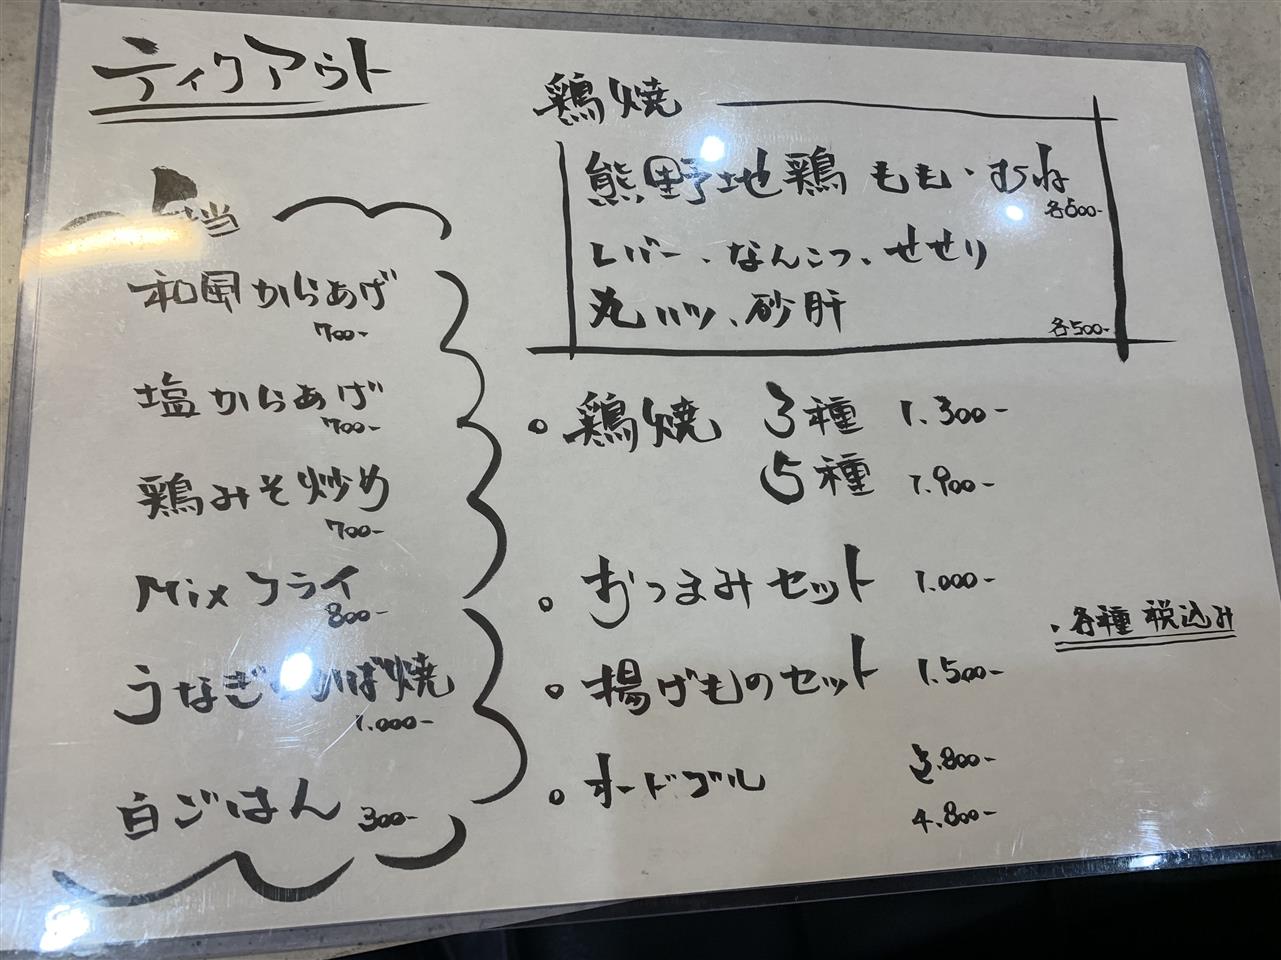 テイクアウト
弁当
和風からあげ
700-
塩からあげ
700-
鶏みそ炒め
700-
Mixフライ
800-
うなぎかば焼
1.000-
白ごはん 300-
鶏焼
熊野地鶏 もも・むね
各600-
レバー、なんこつ、せせり
丸ハツ、砂肝
各500-
鶏焼 3種 1.300-
5種 1.900-
おつまみセット 1.000-
揚げものセット 1.500-
オードブル 3.800-
4.800-
・各種 税込み